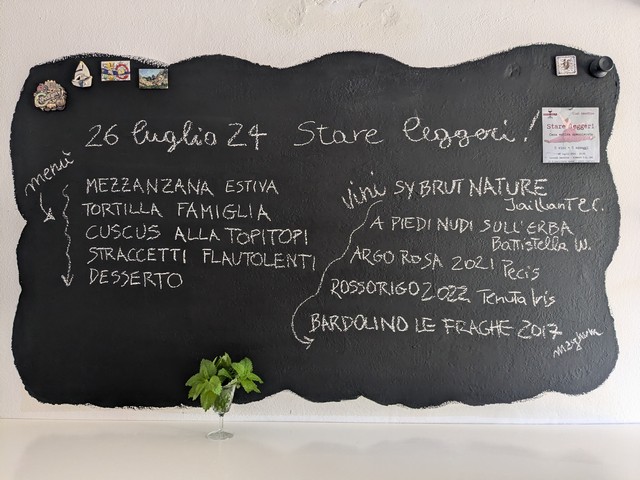 26 luglio 24 Stare leggeri!
menù
MEZZANZANA ESTIVA
TORTILLA FAMIGLIA
CUSCUS ALLA TOPITOPI
STRACCETTI FLAUTOLENTI
DESSERTO
vini SY BRUT NATURE
Jaillant E C.
A PIEDI NUDI SULL'ERBA
Battistella W.
ARGO ROSA 2021
Pecis
ROSSORIGO 2022 Tenuta Iris
BARDOLINO LE FRAGHE 2017
magnum
Stare leggeri